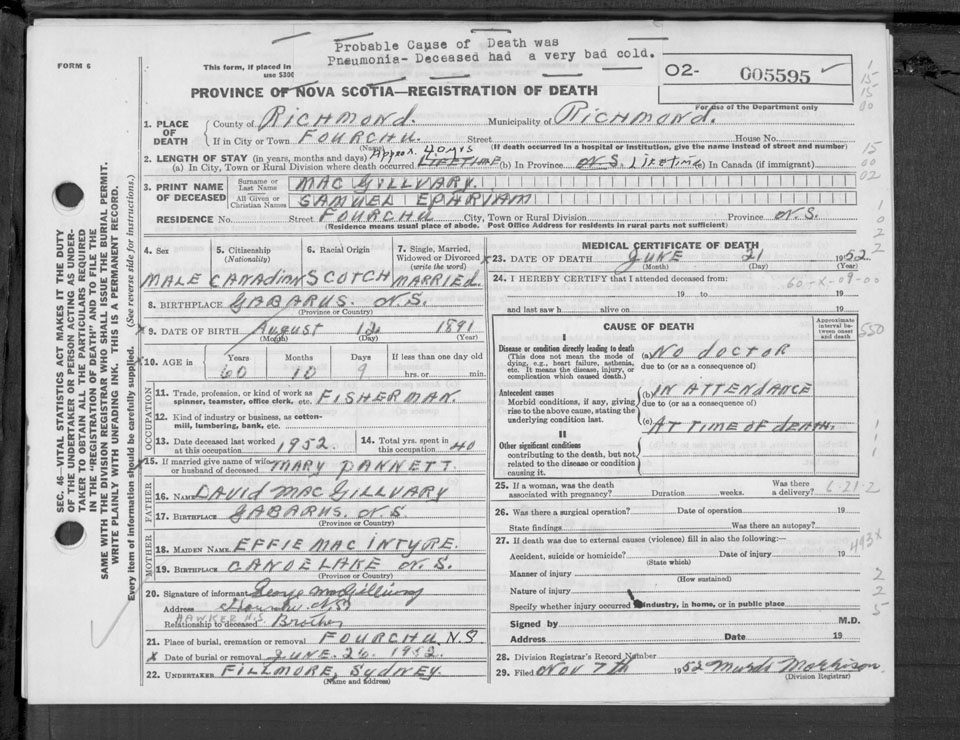 Probable Cause of Death was
Pneumonia- Deceased had a very bad cold.
FORM 6
This form, if placed in
use $300
O2- 005595
For use of the Department only
PROVINCE OF NOVA SCOTIA—REGISTRATION OF DEATH
1. PLACE OF DEATH
County of RICHMOND. Municipality of RICHMOND.
If in City or Town FOURCHU. Street House No.
(Name) (If death occurred in a hospital or institution, give the name instead of street and number)
2. LENGTH OF STAY (in years, months and days) Approx. 40 yrs
(a) In City, Town or Rural Division where death occurred LIFETIME (b) In Province N.S. LIFETIME (c) In Canada (if immigrant)
3. PRINT NAME OF DECEASED
Surname or Last Name MAC GILLVARY.
All Given or Christian Names SAMUEL EPARIAM
RESIDENCE No. Street FOURCHU City, Town or Rural Division Province N.S.
(Residence means usual place of abode. Post Office Address for residents in rural parts not sufficient)
SEC. 46—VITAL STATISTICS ACT MAKES IT THE DUTY
OF THE UNDERTAKER OR PERSON ACTING AS UNDER-
TAKER TO OBTAIN ALL THE PARTICULARS REQUIRED
IN THE "REGISTRATION OF DEATH" AND TO FILE THE
SAME WITH THE DIVISION REGISTRAR WHO SHALL ISSUE THE BURIAL PERMIT.
WRITE PLAINLY WITH UNFADING INK. THIS IS A PERMANENT RECORD.
Every item of information should be carefully supplied. (See reverse side for instructions.)
4. Sex 5. Citizenship (Nationality) 6. Racial Origin 7. Single, Married, Widowed or Divorced (write the word)
MALE CANADIAN SCOTCH MARRIED.
8. BIRTHPLACE GABARUS. N.S.
(Province or Country)
X 9. DATE OF BIRTH August 12 1891
(Month) (Day) (Year)
10. AGE in Years Months Days If less than one day old
60 10 9 hrs. or min.
OCCUPATION
11. Trade, profession, or kind of work as spinner, teamster, office clerk, etc. FISHERMAN.
12. Kind of industry or business, as cotton-mill, lumbering, bank, etc.
13. Date deceased last worked at this occupation 1952 14. Total yrs. spent in this occupation 40
15. If married give name of wife or husband of deceased MARY PANNETT.
FATHER
16. NAME DAVID MAC GILLVARY
17. BIRTHPLACE GABARUS. N.S.
(Province or Country)
MOTHER
18. MAIDEN NAME EFFIE MAC INTYRE.
19. BIRTHPLACE CANOE LAKE N.S.
(Province or Country)
20. Signature of informant George MacGillivary
Address Fourchu N.S.
HAWKER N.S.
Relationship to deceased Brother
21. Place of burial, cremation or removal FOURCHU N.S.
X Date of burial or removal JUNE. 26. 1952.
22. UNDERTAKER FILLMORE, SYDNEY.
(Name and address)
MEDICAL CERTIFICATE OF DEATH
X 23. DATE OF DEATH JUNE 21 1952.
(Month) (Day) (Year)
24. I HEREBY CERTIFY that I attended deceased from:
60-X-09-00
19 to 19
and last saw h alive on 19
CAUSE OF DEATH
Approximate interval between onset and death
I
Disease or condition directly leading to death
(This does not mean the mode of dying, e.g., heart failure, asthenia, etc. It means the disease, injury, or complication which caused death.)
(a) NO DOCTOR
due to (or as a consequence of)
Antecedent causes
Morbid conditions, if any, giving rise to the above cause, stating the underlying condition last.
(b) IN ATTENDANCE
due to (or as a consequence of)
(c) AT TIME OF DEATH.
II
Other significant conditions
contributing to the death, but not related to the disease or condition causing it.
25. If a woman, was the death associated with pregnancy? Duration weeks. Was there a delivery? 6-21-2
26. Was there a surgical operation? Date of operation 19
State findings Was there an autopsy?
27. If death was due to external causes (violence) fill in also the following:—
Accident, suicide or homicide? Date of injury 19
(State which)
493X
Manner of injury
(How sustained)
Nature of injury
Specify whether injury occurred in industry, in home, or in public place
Signed by M.D.
Address Date 19
28. Division Registrar's Record Number
29. Filed NOV 7th 1952 Murdo Morrison
(Division Registrar)
1
15
15
00
15
00
02
1
0
2
2
550
1
1
1
2
2
5